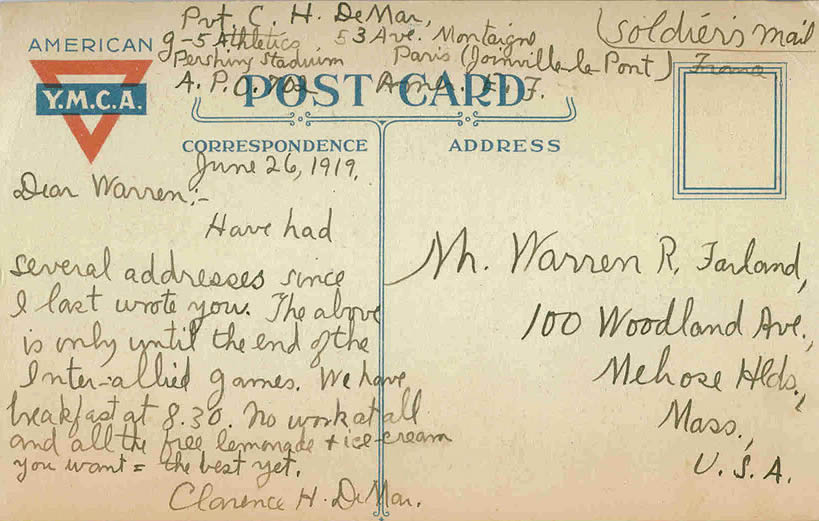 Pvt. C. H. DeMar,
(Soldier's mail
AMERICAN
Y.M.C.A.
G-5 Athletics 53 Ave. Montaigne
Pershing Stadium Paris (Joinville-le-Pont) France
A. P. O. 702 Amer. E. F.
POST CARD
CORRESPONDENCE
ADDRESS
June 26, 1919.
Dear Warren:-
Have had
several addresses since
I last wrote you. The above
is only until the end of the
Inter-allied games. We have
breakfast at 8.30. No work at all
and all the free lemonade + ice-cream
you want = the best yet.
Clarence H. DeMar.
Mr. Warren R. Farland,
100 Woodland Ave.,
Melrose Hlds.,
Mass.,
U. S. A.